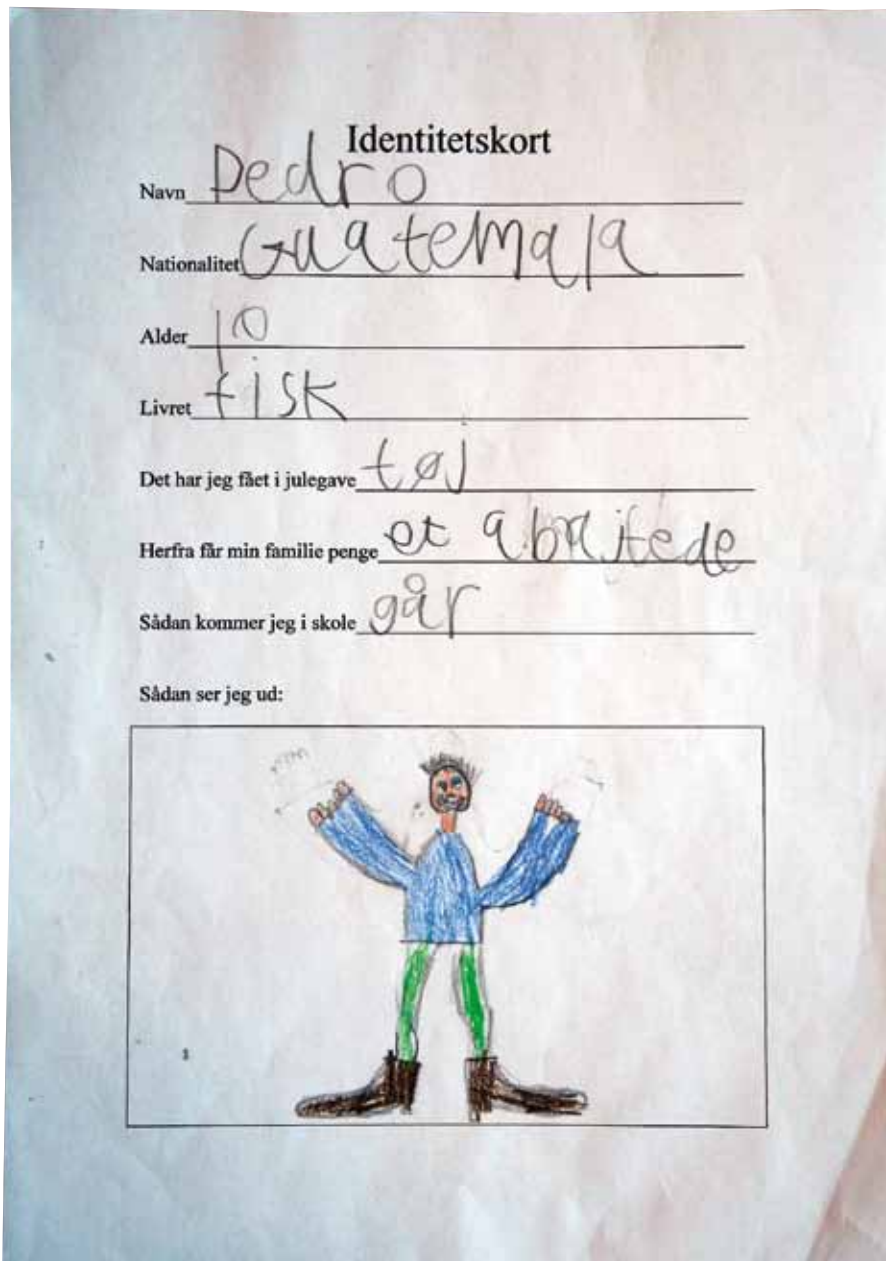 Identitetskort
Navn Pedro
Nationalitet Guatemala
Alder 10
Livret fisk
Det har jeg fået i julegave tøj
Herfra får min familie penge et abraitede
Sådan kommer jeg i skole går
Sådan ser jeg ud: